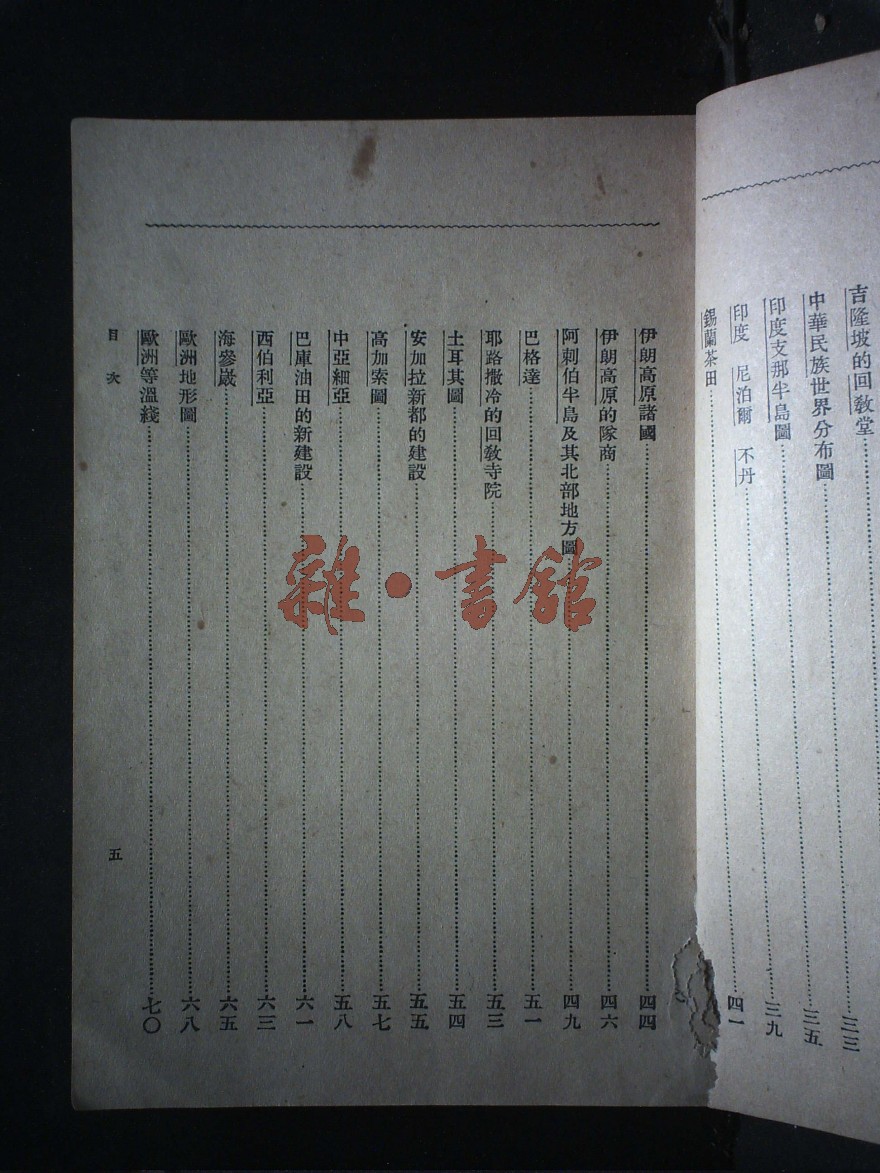 吉隆坡的回敎堂……三三
中華民族世界分布圖……三五
印度支那半島圖……三九
印度 尼泊爾 不丹……四一
錫蘭茶田……
伊朗高原諸國……四四
伊朗高原的隊商……四六
阿剌伯半島及其北部地方圖……四九
巴格達……五一
耶路撒冷的回敎寺院……五三
土耳其圖……五四
安加拉新都的建設……五五
高加索圖……五七
中亞細亞……五八
巴庫油田的新建設……六一
西伯利亞……六三
海參崴……六五
歐洲地形圖……六八
歐洲等溫綫……七〇
目次 五
雜·書館